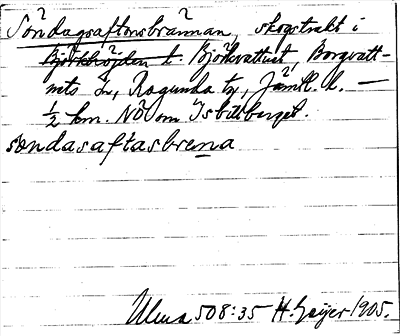 Söndagsaftonsbrännan, skogstrakt i
Björkhöjden t. Björkvattnet, Borgvatt-
nets s, Ragunda tg, Jämtl. l. —
½ km. NÖ om Isbillberget.
søndasaftasbrena
Ulma 508:35 H. Geijer 1905.